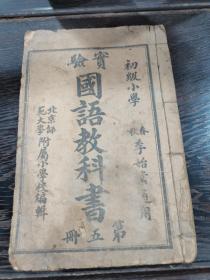 實驗
初級小學
春秋季始業通用
國語教科書
第五冊
北京師範大學附屬小學校編輯